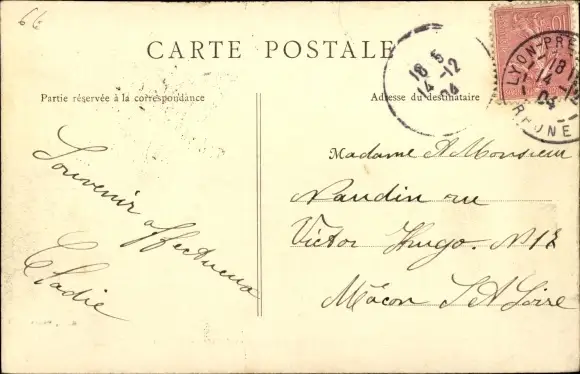 66
CARTE POSTALE
Partie réservée à la correspondance
Adresse du destinataire
18 5
14-12
04
LYON-PRE
18
14-12
04
RHONE
10
Souvenir affectueux
Elodie
Madame & Monsieur
Naudin rue
Victor Hugo. N 12
Mâcon S & Loire